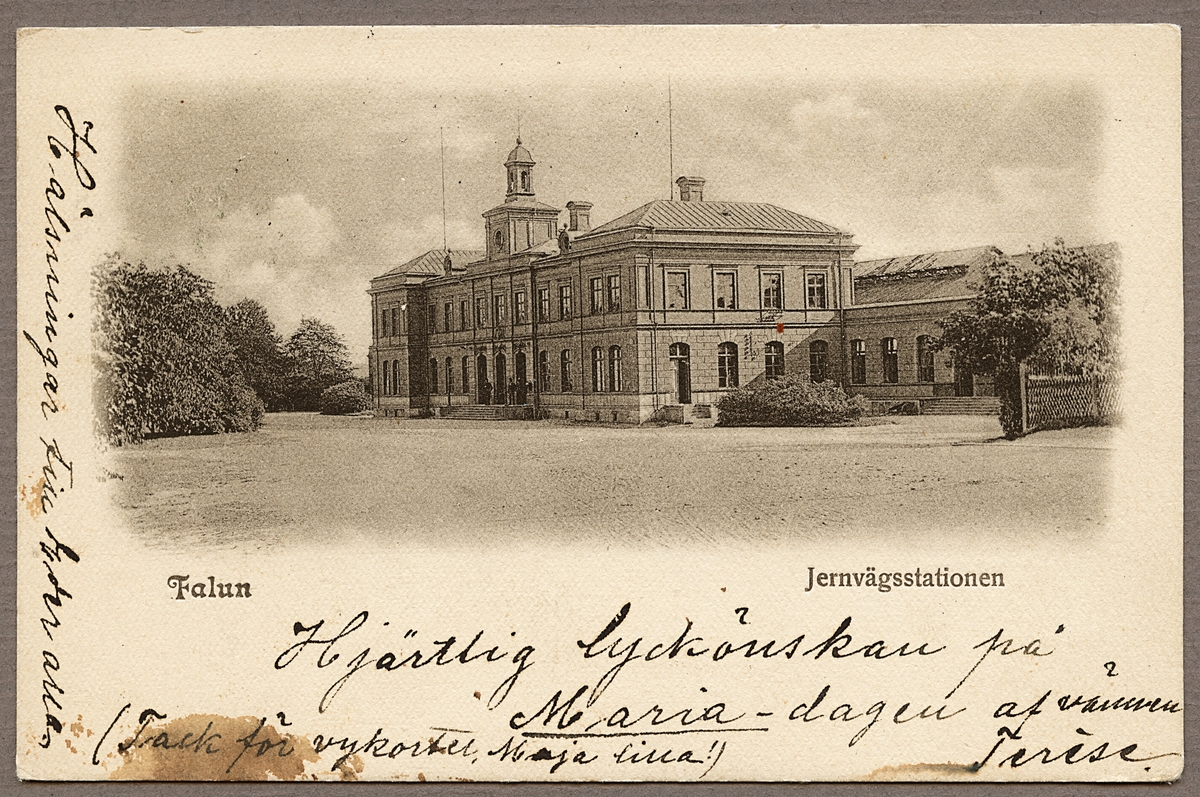 Falun
Jernvägsstationen
Hjärtlig lyckönskan på
Maria-dagen af vännen
Terése.
(Tack för vykortet, Maja lilla!)
Hälsningar till Eder alla.